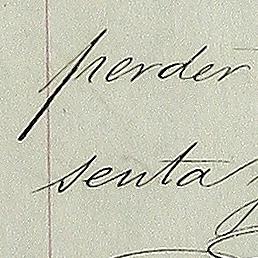 perder
senta